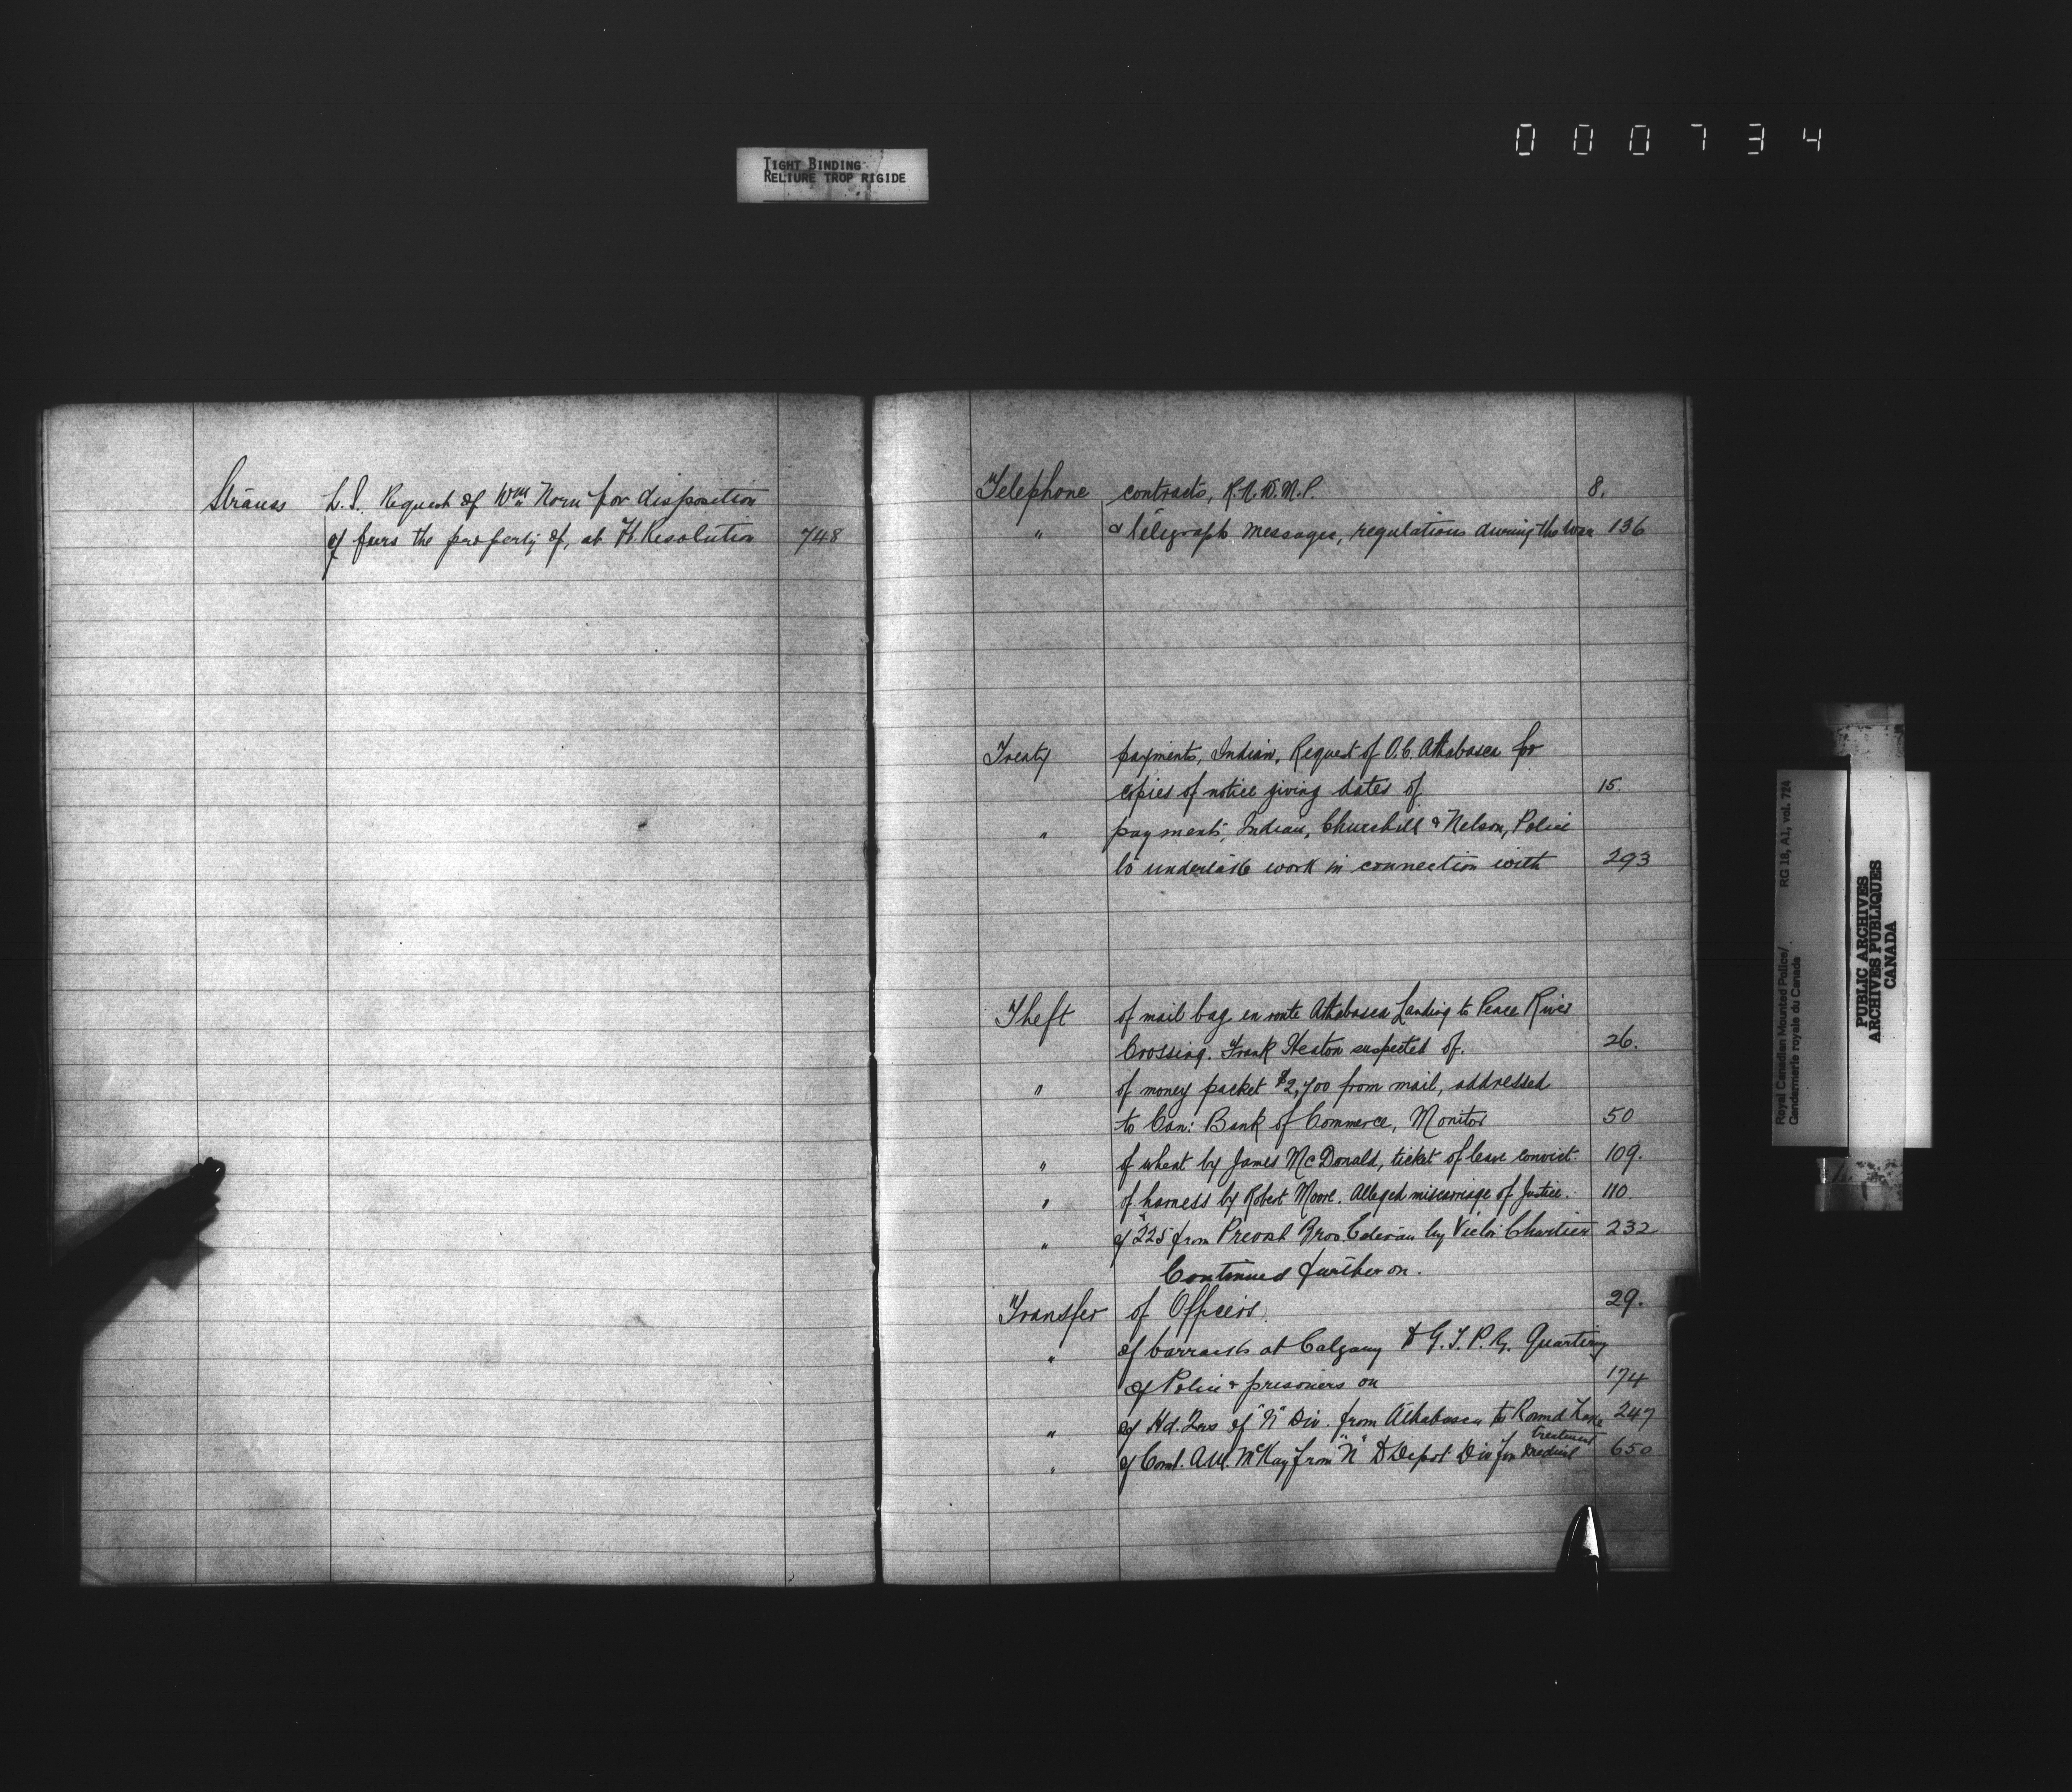 000734
TIGHT BINDING
RELIURE TROP RIGIDE
Strauss L.S. Request of Wm Norn for disposition
of furs the property of, at Ft. Resolution 748
Telephone contracts, R.N.W.M.P. 8.
" & telegraph messages, regulations during the war 136
Treaty payments, Indian, Request of O.C. Athabasca for
copies of notice giving dates of 15.
" payments, Indian, Churchill & Nelson, Police
to undertake work in connection with 293
Theft of mail bag en route Athabasca Landing to Peace River
Crossing. Frank Heaton suspected of. 26.
" of money packet $2,700 from mail, addressed
to Can: Bank of Commerce, Monitor 50
" of wheat by James McDonald, ticket of leave convict. 109.
" of harness by Robert Moore. Alleged miscarriage of Justice. 110.
" of $225 from Prevost Bros. by Victor Chartier 232
Continued further on.
Transfer of Officers. 29.
" of barracks at Calgary to G.T.P. Ry. Quartering
of Police & prisoners on 174
" of Hd. Qrs of "N" Div. from Athabasca to Round Lake 247
" of Const. A.W. McKay from "N" to Depot Div for medical treatment 650
Royal Canadian Mounted Police/ RG 18, A1, vol. 724
Gendarmerie royale du Canada
PUBLIC ARCHIVES
ARCHIVES PUBLIQUES
CANADA